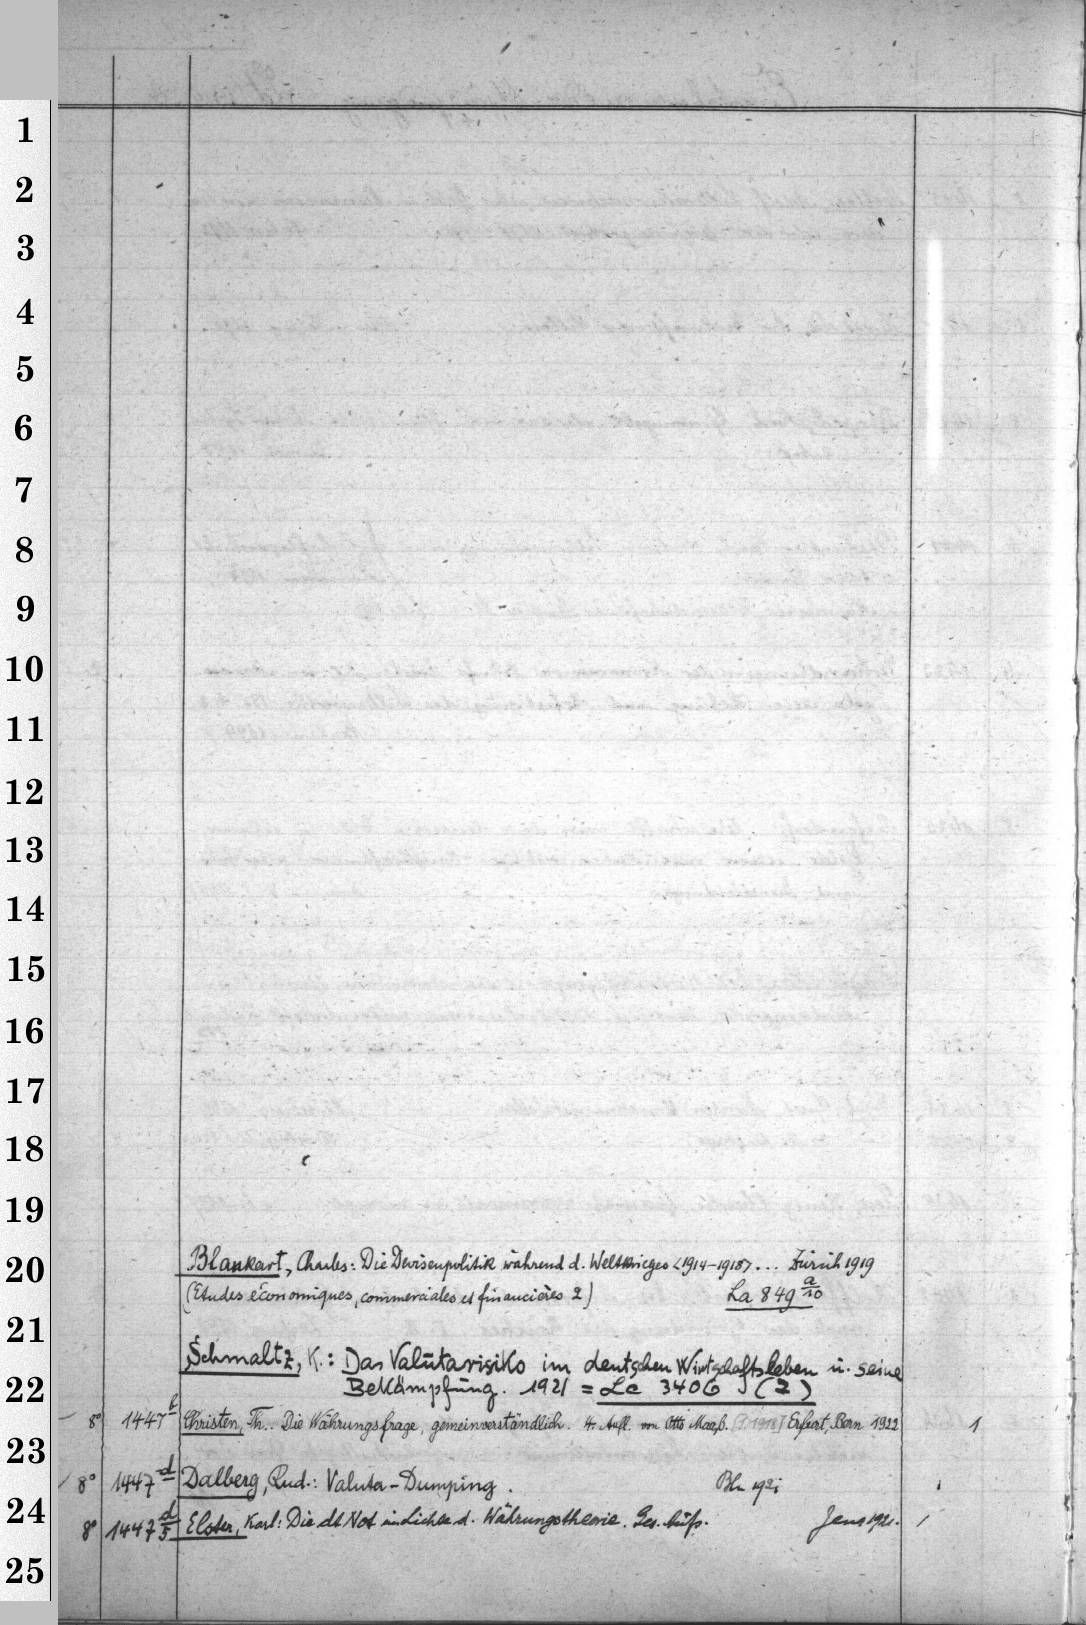 1
2
3
4
5
6
7
8
9
10
11
12
13
14
15
16
17
18
19
20
21
22
23
24
25
Blankart, Charles: Die Devisenpolitik während d. Weltkrieges <1914-1918> ... Zürich 1919
(Etudes économiques, commerciales et financières 2) La 849 a/10
Schmaltz, K.: Das Valutarisiko im deutschen Wirtschaftsleben u. seine
Bekämpfung. 1921 = La 3406 (2)
8° 1447 b Christen, Th.. Die Währungsfrage, gemeinverständlich. 4. Aufl. von Otto Maaß. Erfurt, Bern 1922 1
8° 1447 d Dalberg, Rud.: Valuta-Dumping. Bln 1921
8° 1447 d/5 Elster, Karl: Die dt Not im Lichte d. Währungstheorie. Ges. Aufs. Jena 1921.